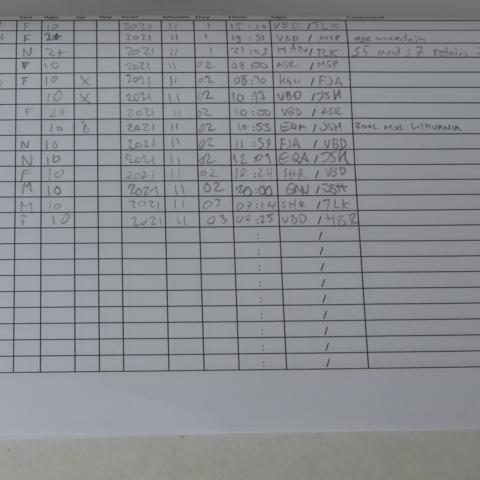 Sex Age Sp Wp Year Month Day Time Sign Comment
F 2021 11 1 VBD / TLK
F 2+ 2021 11 1 19:51 VBD / MSP age uncertain
N 2+ 2021 11 1 21:03 HAN / TLK S5 and S7 retain
F 10 2021 11 02 08:00 ASR / MSP
F 10 X 2021 11 02 08:30 HAN / FJA
10 X 2021 11 02 10:17 VBD / JSH
F 2+ 2021 11 02 10:00 VBD / ASR
10 8 2021 11 02 10:53 EQA / JSH ZOOL MUS LITHUANIA
N 10 2021 11 02 11:59 FJA / VBD
N 10 2021 11 02 12:01 EQA / JSH
F 10 2021 11 02 18:24 SHR / VBD
M 10 2021 11 02 20:00 / JSH
M 10 2021 11 03 07:14 SHR / TLK
F 10 2021 11 03 09:25 VBD / MBR
: /
: /
: /
: /
: /
: /
: /
: /